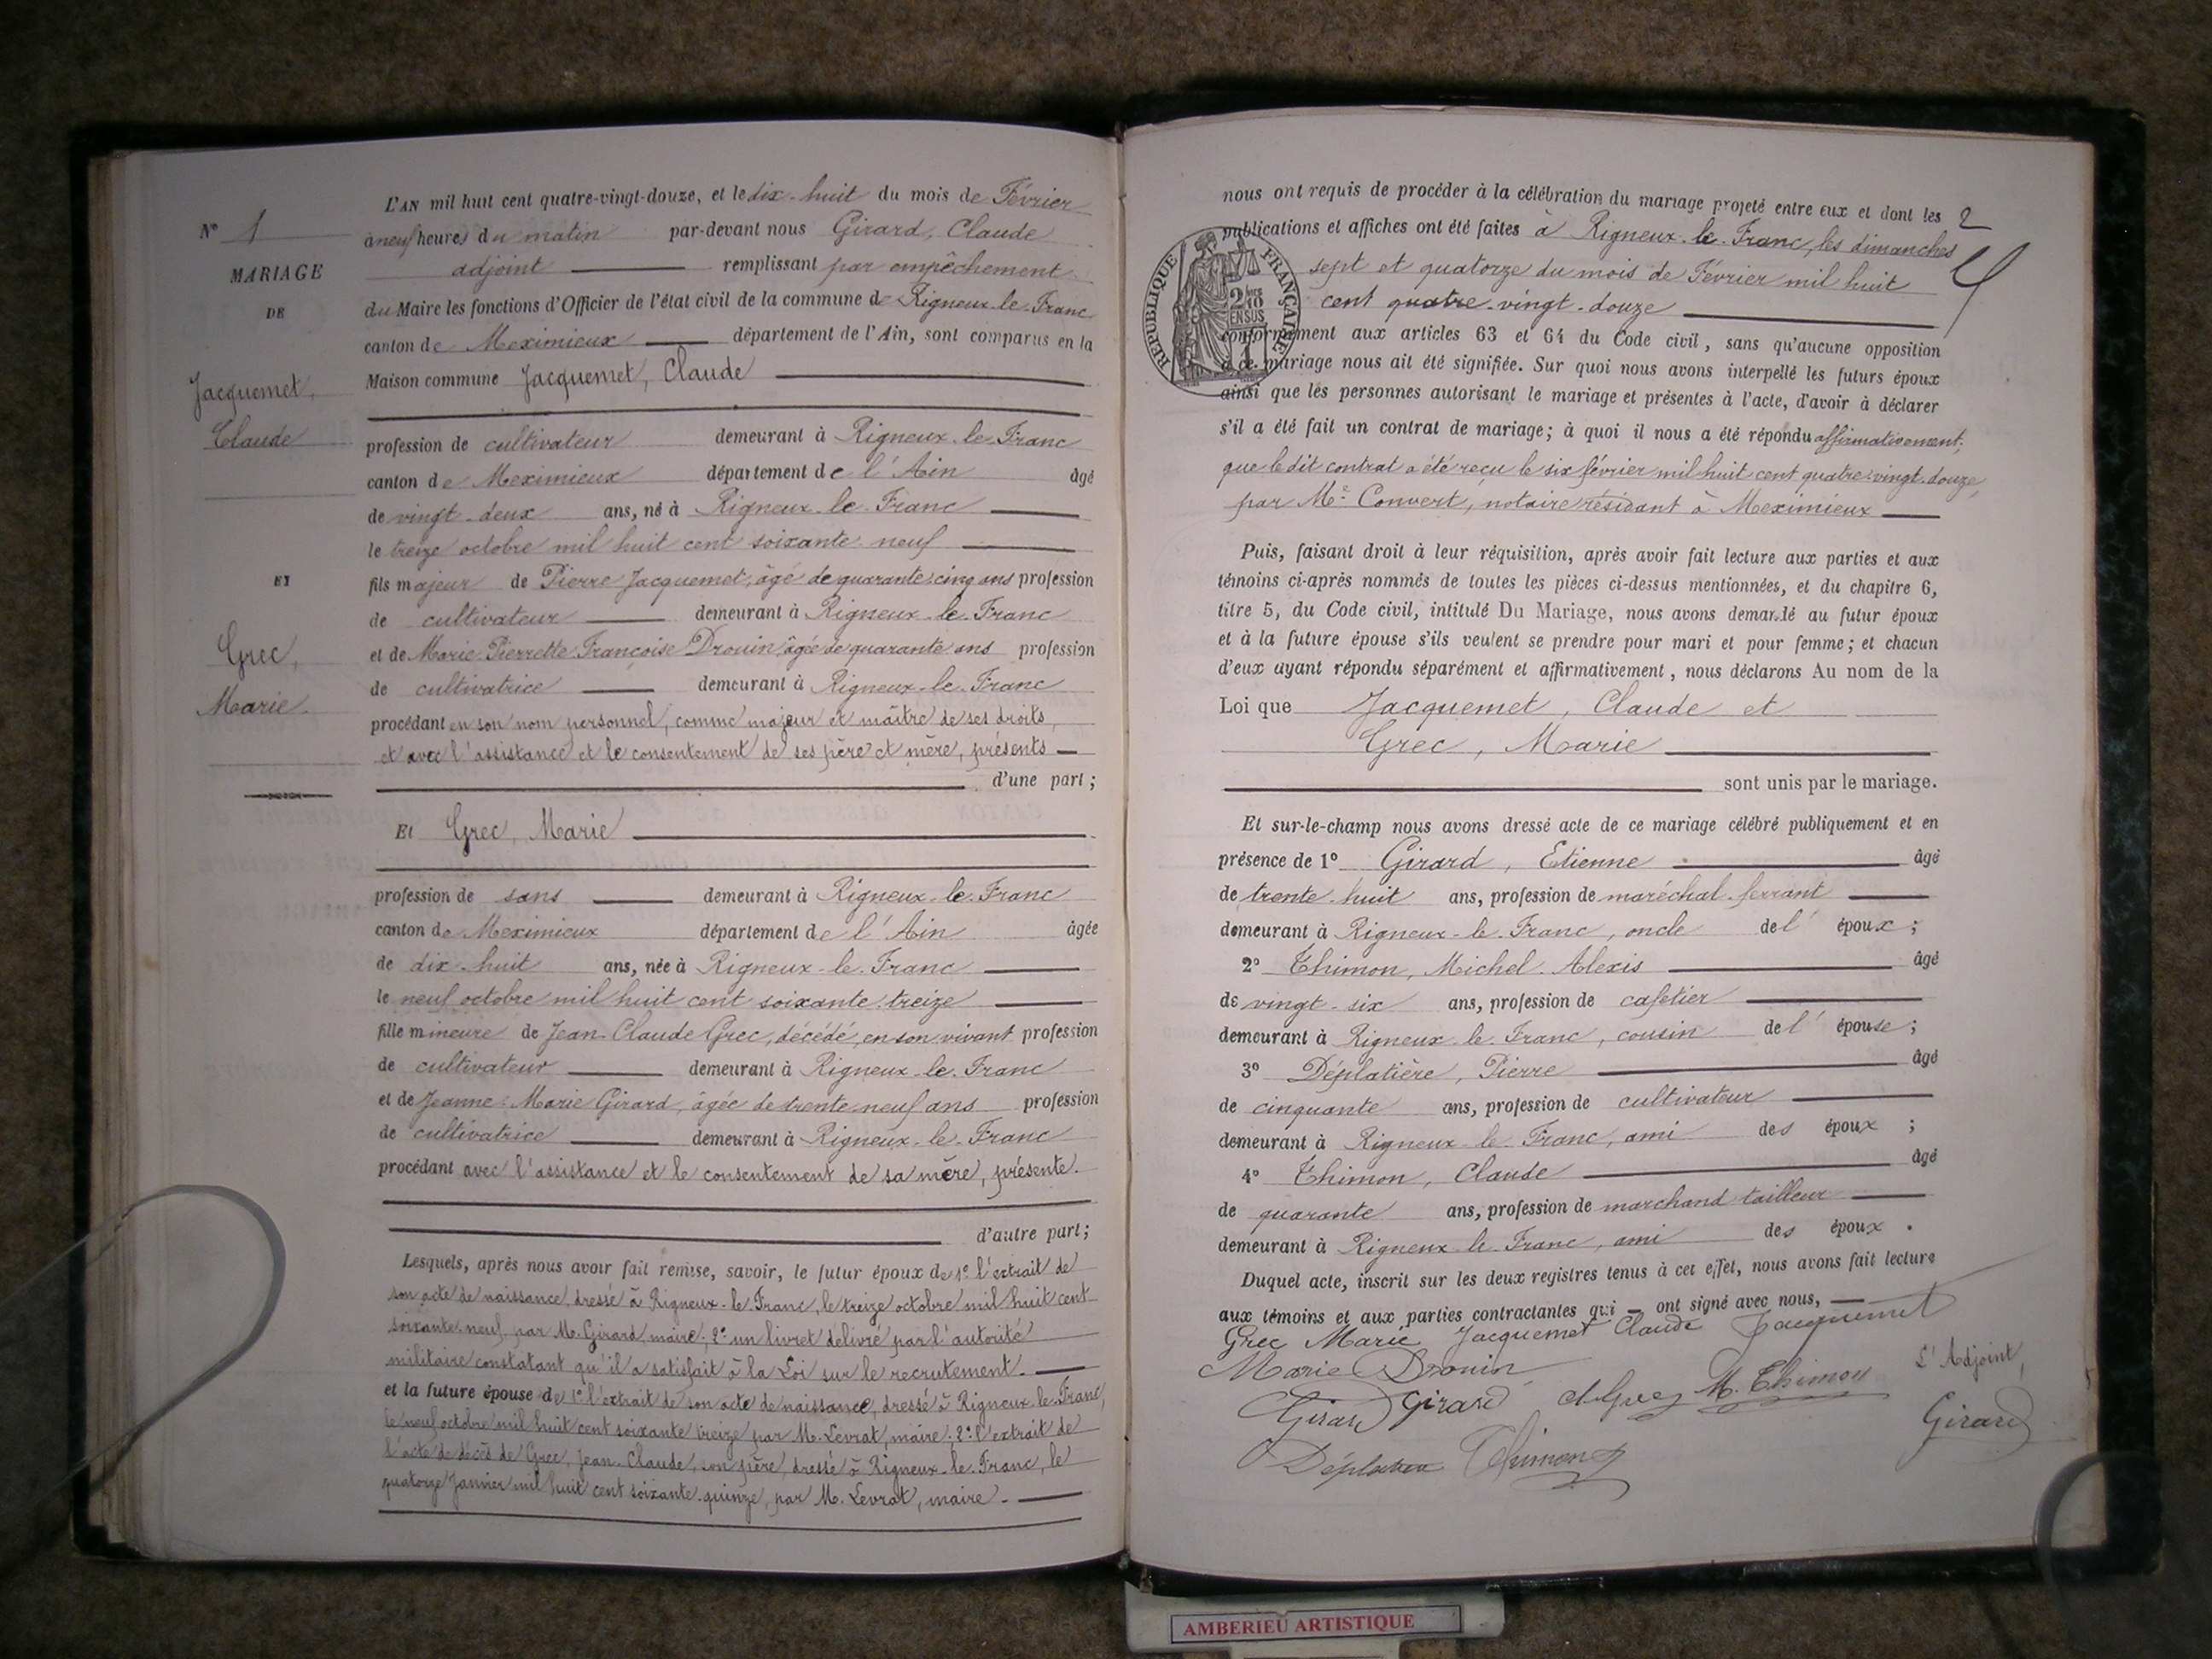 N° 1
MARIAGE
DE
Jacquemet,
Claude
ET
Grec,
Marie.
L'AN mil huit cent quatre-vingt-douze, et le dix-huit du mois de Février
à neuf heures du matin par-devant nous Girard, Claude
adjoint remplissant par empêchement
du Maire les fonctions d'Officier de l'état civil de la commune de Rigneux-le-Franc
canton de Meximieux département de l'Ain, sont comparus en la
Maison commune Jacquemet, Claude
profession de cultivateur demeurant à Rigneux-le-Franc
canton de Meximieux département de l'Ain âgé
de vingt-deux ans, né à Rigneux-le-Franc
le treize octobre mil huit cent soixante-neuf
fils majeur de Pierre Jacquemet, âgé de quarante-cinq ans profession
de cultivateur demeurant à Rigneux-le-Franc
et de Marie-Pierrette-Françoise Drouin âgée de quarante ans profession
de cultivatrice demeurant à Rigneux-le-Franc
procédant en son nom personnel, comme majeur et maître de ses droits,
et avec l'assistance et le consentement de ses père et mère, présents
d'une part ;
Et Grec, Marie
profession de sans demeurant à Rigneux-le-Franc
canton de Meximieux département de l'Ain âgée
de dix-huit ans, née à Rigneux-le-Franc
le neuf octobre mil huit cent soixante-treize
fille mineure de Jean-Claude Grec, décédé, en son vivant profession
de cultivateur demeurant à Rigneux-le-Franc
et de Jeanne-Marie Girard, âgée de trente-neuf ans profession
de cultivatrice demeurant à Rigneux-le-Franc
procédant avec l'assistance et le consentement de sa mère, présente.
d'autre part ;
Lesquels, après nous avoir fait remise, savoir, le futur époux de 1° l'extrait de
son acte de naissance, dressé à Rigneux-le-Franc, le treize octobre mil huit cent
soixante-neuf, par M. Girard, maire ; 2° un livret délivré par l'autorité
militaire constatant qu'il a satisfait à la Loi sur le recrutement.
et la future épouse de 1° l'extrait de son acte de naissance, dressé à Rigneux-le-Franc,
le neuf octobre mil huit cent soixante-treize par M. Levrat, maire ; 2° l'extrait de
l'acte de décès de Grec, Jean-Claude, son père, dressé à Rigneux-le-Franc, le
quatorze Janvier mil huit cent soixante-quinze, par M. Levrat, maire.
nous ont requis de procéder à la célébration du mariage projeté entre eux et dont les 2
publications et affiches ont été faites à Rigneux-le-Franc, les dimanches
sept et quatorze du mois de Février mil huit
cent quatre-vingt-douze
RÉPUBLIQUE FRANÇAISE
conformément aux articles 63 et 64 du Code civil, sans qu'aucune opposition
à ce mariage nous ait été signifiée. Sur quoi nous avons interpellé les futurs époux
ainsi que les personnes autorisant le mariage et présentes à l'acte, d'avoir à déclarer
s'il a été fait un contrat de mariage ; à quoi il nous a été répondu affirmativement,
que le dit contrat a été reçu le six février mil huit cent quatre-vingt-douze,
par Me Convert, notaire résidant à Meximieux
Puis, faisant droit à leur réquisition, après avoir fait lecture aux parties et aux
témoins ci-après nommés de toutes les pièces ci-dessus mentionnées, et du chapitre 6,
titre 5, du Code civil, intitulé Du Mariage, nous avons demandé au futur époux
et à la future épouse s'ils veulent se prendre pour mari et pour femme ; et chacun
d'eux ayant répondu séparément et affirmativement, nous déclarons Au nom de la
Loi que Jacquemet, Claude et
Grec, Marie
sont unis par le mariage.
Et sur-le-champ nous avons dressé acte de ce mariage célébré publiquement et en
présence de 1° Girard, Etienne âgé
de trente-huit ans, profession de maréchal-ferrant
demeurant à Rigneux-le-Franc, oncle de l'époux ;
2° Thimon, Michel Alexis âgé
de vingt-six ans, profession de cafetier
demeurant à Rigneux-le-Franc, cousin de l'épouse ;
3° Déplatière, Pierre âgé
de cinquante ans, profession de cultivateur
demeurant à Rigneux-le-Franc, ami des époux ;
4° Thimon, Claude âgé
de quarante ans, profession de marchand tailleur
demeurant à Rigneux-le-Franc, ami des époux.
Duquel acte, inscrit sur les deux registres tenus à cet effet, nous avons fait lecture
aux témoins et aux parties contractantes qui ont signé avec nous,
Grec Marie Jacquemet Claude Jacquemet
Marie Drouin L'Adjoint,
Girard Girard M. Thimon Girard
Déplatière Thimon
AMBERIEU ARTISTIQUE